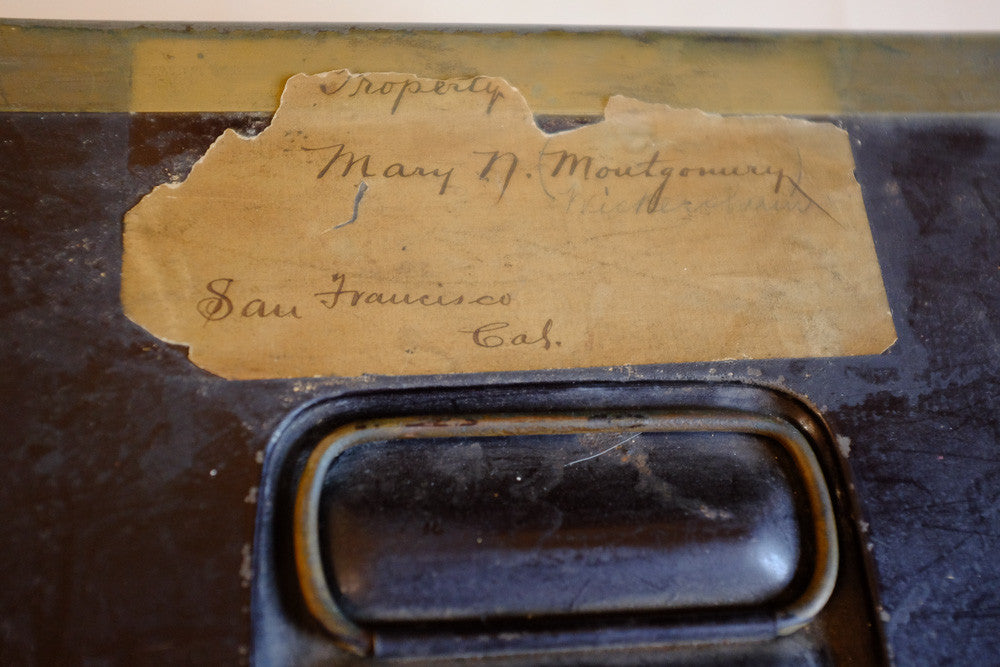 Property
Mary N. (Montgomery)
San Francisco
Cal.